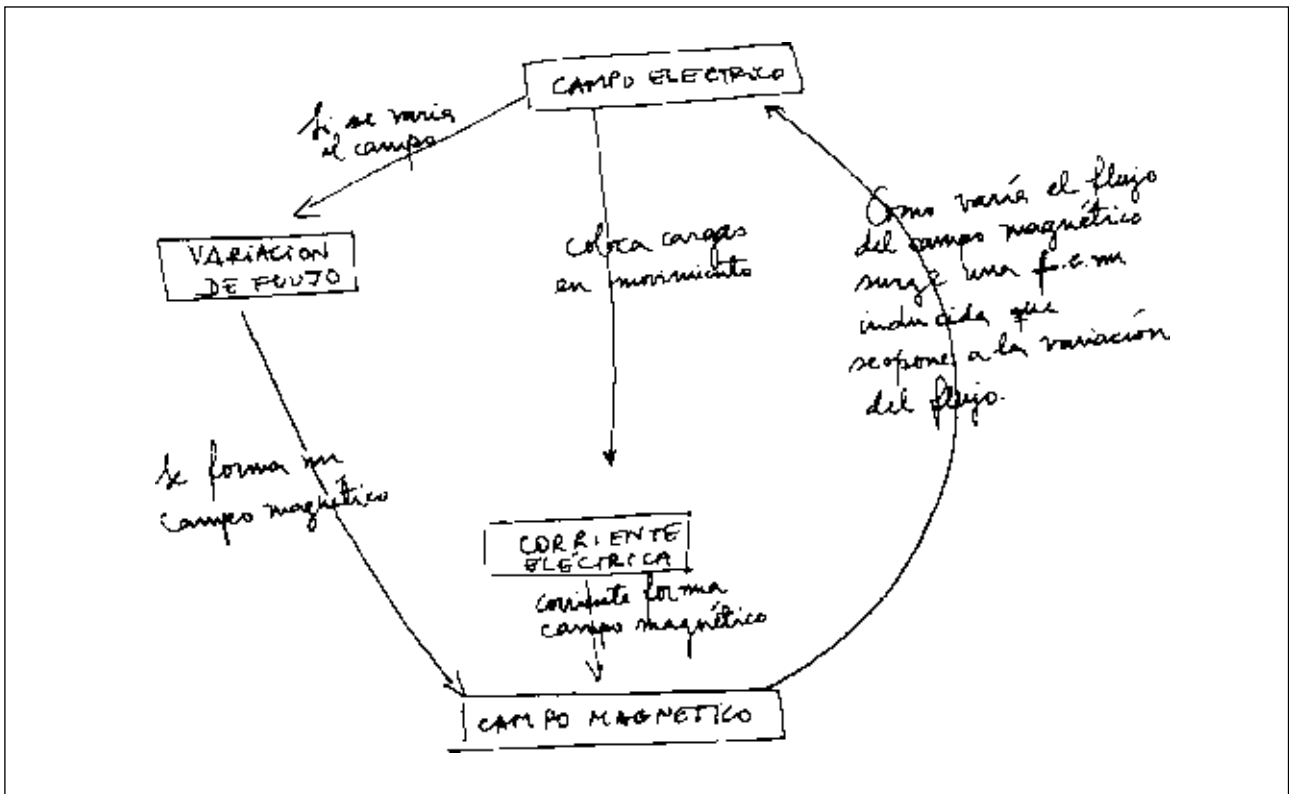 CAMPO ELECTRICO
Si se varia
el campo
VARIACION
DE FLUJO
coloca cargas
en movimiento
Como varía el flujo
del campo magnético
surge una f.e.m
inducida que
se opone a la variación
del flujo.
Se forma un
campo magnético
CORRIENTE
ELÉCTRICA
corriente forma
campo magnético
CAMPO MAGNETICO